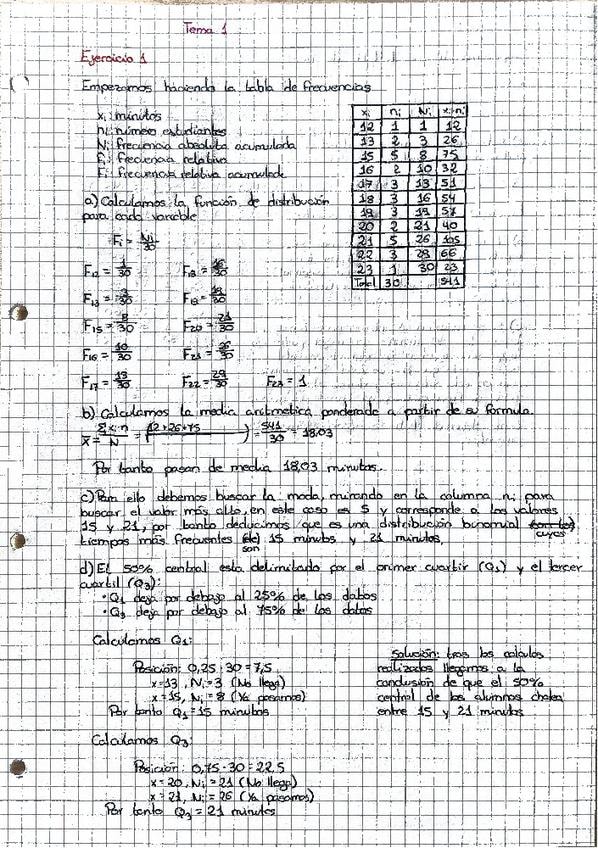 Tema 1
Ejercicio 1
Empezamos haciendo la tabla de frecuencias
xi: minutos
ni: número estudiantes
Ni: frecuencia absoluta acumulada
fi: frecuencia relativa
Fi: frecuencia relativa acumulada
xi ni Ni xi·ni
12 1 1 12
13 2 3 26
15 5 8 75
16 2 10 32
17 3 13 51
18 3 16 54
19 3 19 57
20 2 21 40
21 5 26 105
22 3 29 66
23 1 30 23
Total 30 541
a) Calculamos la función de distribución
para cada variable
Fi = Ni/30
F12 = 1/30 F18 = 16/30
F13 = 3/30 F19 = 19/30
F15 = 8/30 F20 = 21/30
F16 = 10/30 F21 = 26/30
F17 = 13/30 F22 = 29/30 F23 = 1
b) Calculamos la media aritmetica ponderada a partir de su formula.
x̄ = Σxi·n/N = (12+26+75 )/ = 541/30 = 18,03
Por tanto pasan de media 18,03 minutos.
c) Para ello debemos buscar la moda, mirando en la columna ni para
buscar el valor más alto, en este caso es 5 y corresponde a los valores
15 y 21, por tanto deducimos que es una distribución bimomial cuyos
tiempos más frecuentes son 15 minutos y 21 minutos.
d) El 50% central esta delimitado por el primer cuartir (Q1) y el tercer
cuartil (Q3):
• Q1 deja por debajo al 25% de los datos
• Q3 deja por debajo al 75% de los datos
Calculamos Q1:
Posición: 0,25·30 = 7,5
x=13, Ni=3 (No llega)
x=15, Ni=8 (Ya pasamos)
Por tanto Q1=15 minutos
Solución: tras los calculos
realizados llegamos a la
conclusión de que el 50%
central de los alumnos chatea
entre 15 y 21 minutos
Calculamos Q3:
Posición: 0,75·30 = 22,5
x=20, Ni=21 (No llega)
x=21, Ni=26 (Ya pasamos)
Por tanto Q3=21 minutos